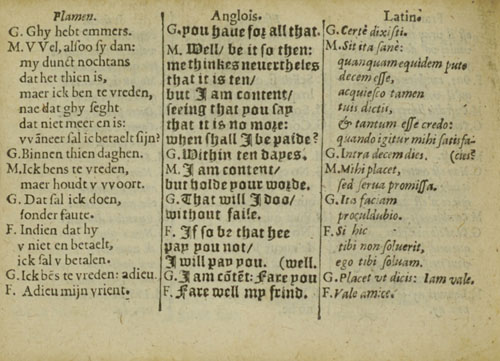 Flamen.
G. Ghy hebt emmers.
M. VVel, alſoo ſy dan:
my dunct nochtans
dat het thien is,
maer ick ben te vreden,
nae dat ghy ſeght
dat niet meer en is:
vvāneer ſal ic betaelt ſijn?
G. Binnen thien daghen.
M. Ick bens te vreden,
maer houdt v vvoort.
G. Dat ſal ick doen,
ſonder faute.
F. Indien dat hy
v niet en betaelt,
ick ſal v betalen.
G. Ick bēs te vreden: adieu.
F. Adieu mijn vrient.
Anglois.
G. you haue for all that.
M. Well/ be it ſo then:
me thinkes neuertheles
that it is ten/
but I am content/
ſeeing that you ſay
that it is no more:
when ſhall I be paide?
G. Within ten dayes.
M. I am content/
but holde your worde.
G. That will I doo/
without faile.
F. If ſo be that hee
pay you not/
I will pay you. (well.
G. I am cōtēt: Fare you
F. Fare well my frind.
Latin.
G. Certè dixiſti.
M. Sit ita ſanè:
quanquam equidem puto
decem eſſe,
acquieſco tamen
tuis dictis,
& tantum eſſe credo:
quando igitur mihi ſatisfa-
G. Intra decem dies. (cius?
M. Mihi placet,
ſed ſerua promiſſa.
G. Ita faciam
proculdubio.
F. Si hic
tibi non ſoluerit,
ego tibi ſoluam.
G. Placet vt dicis: Iam vale.
F. Vale amice.